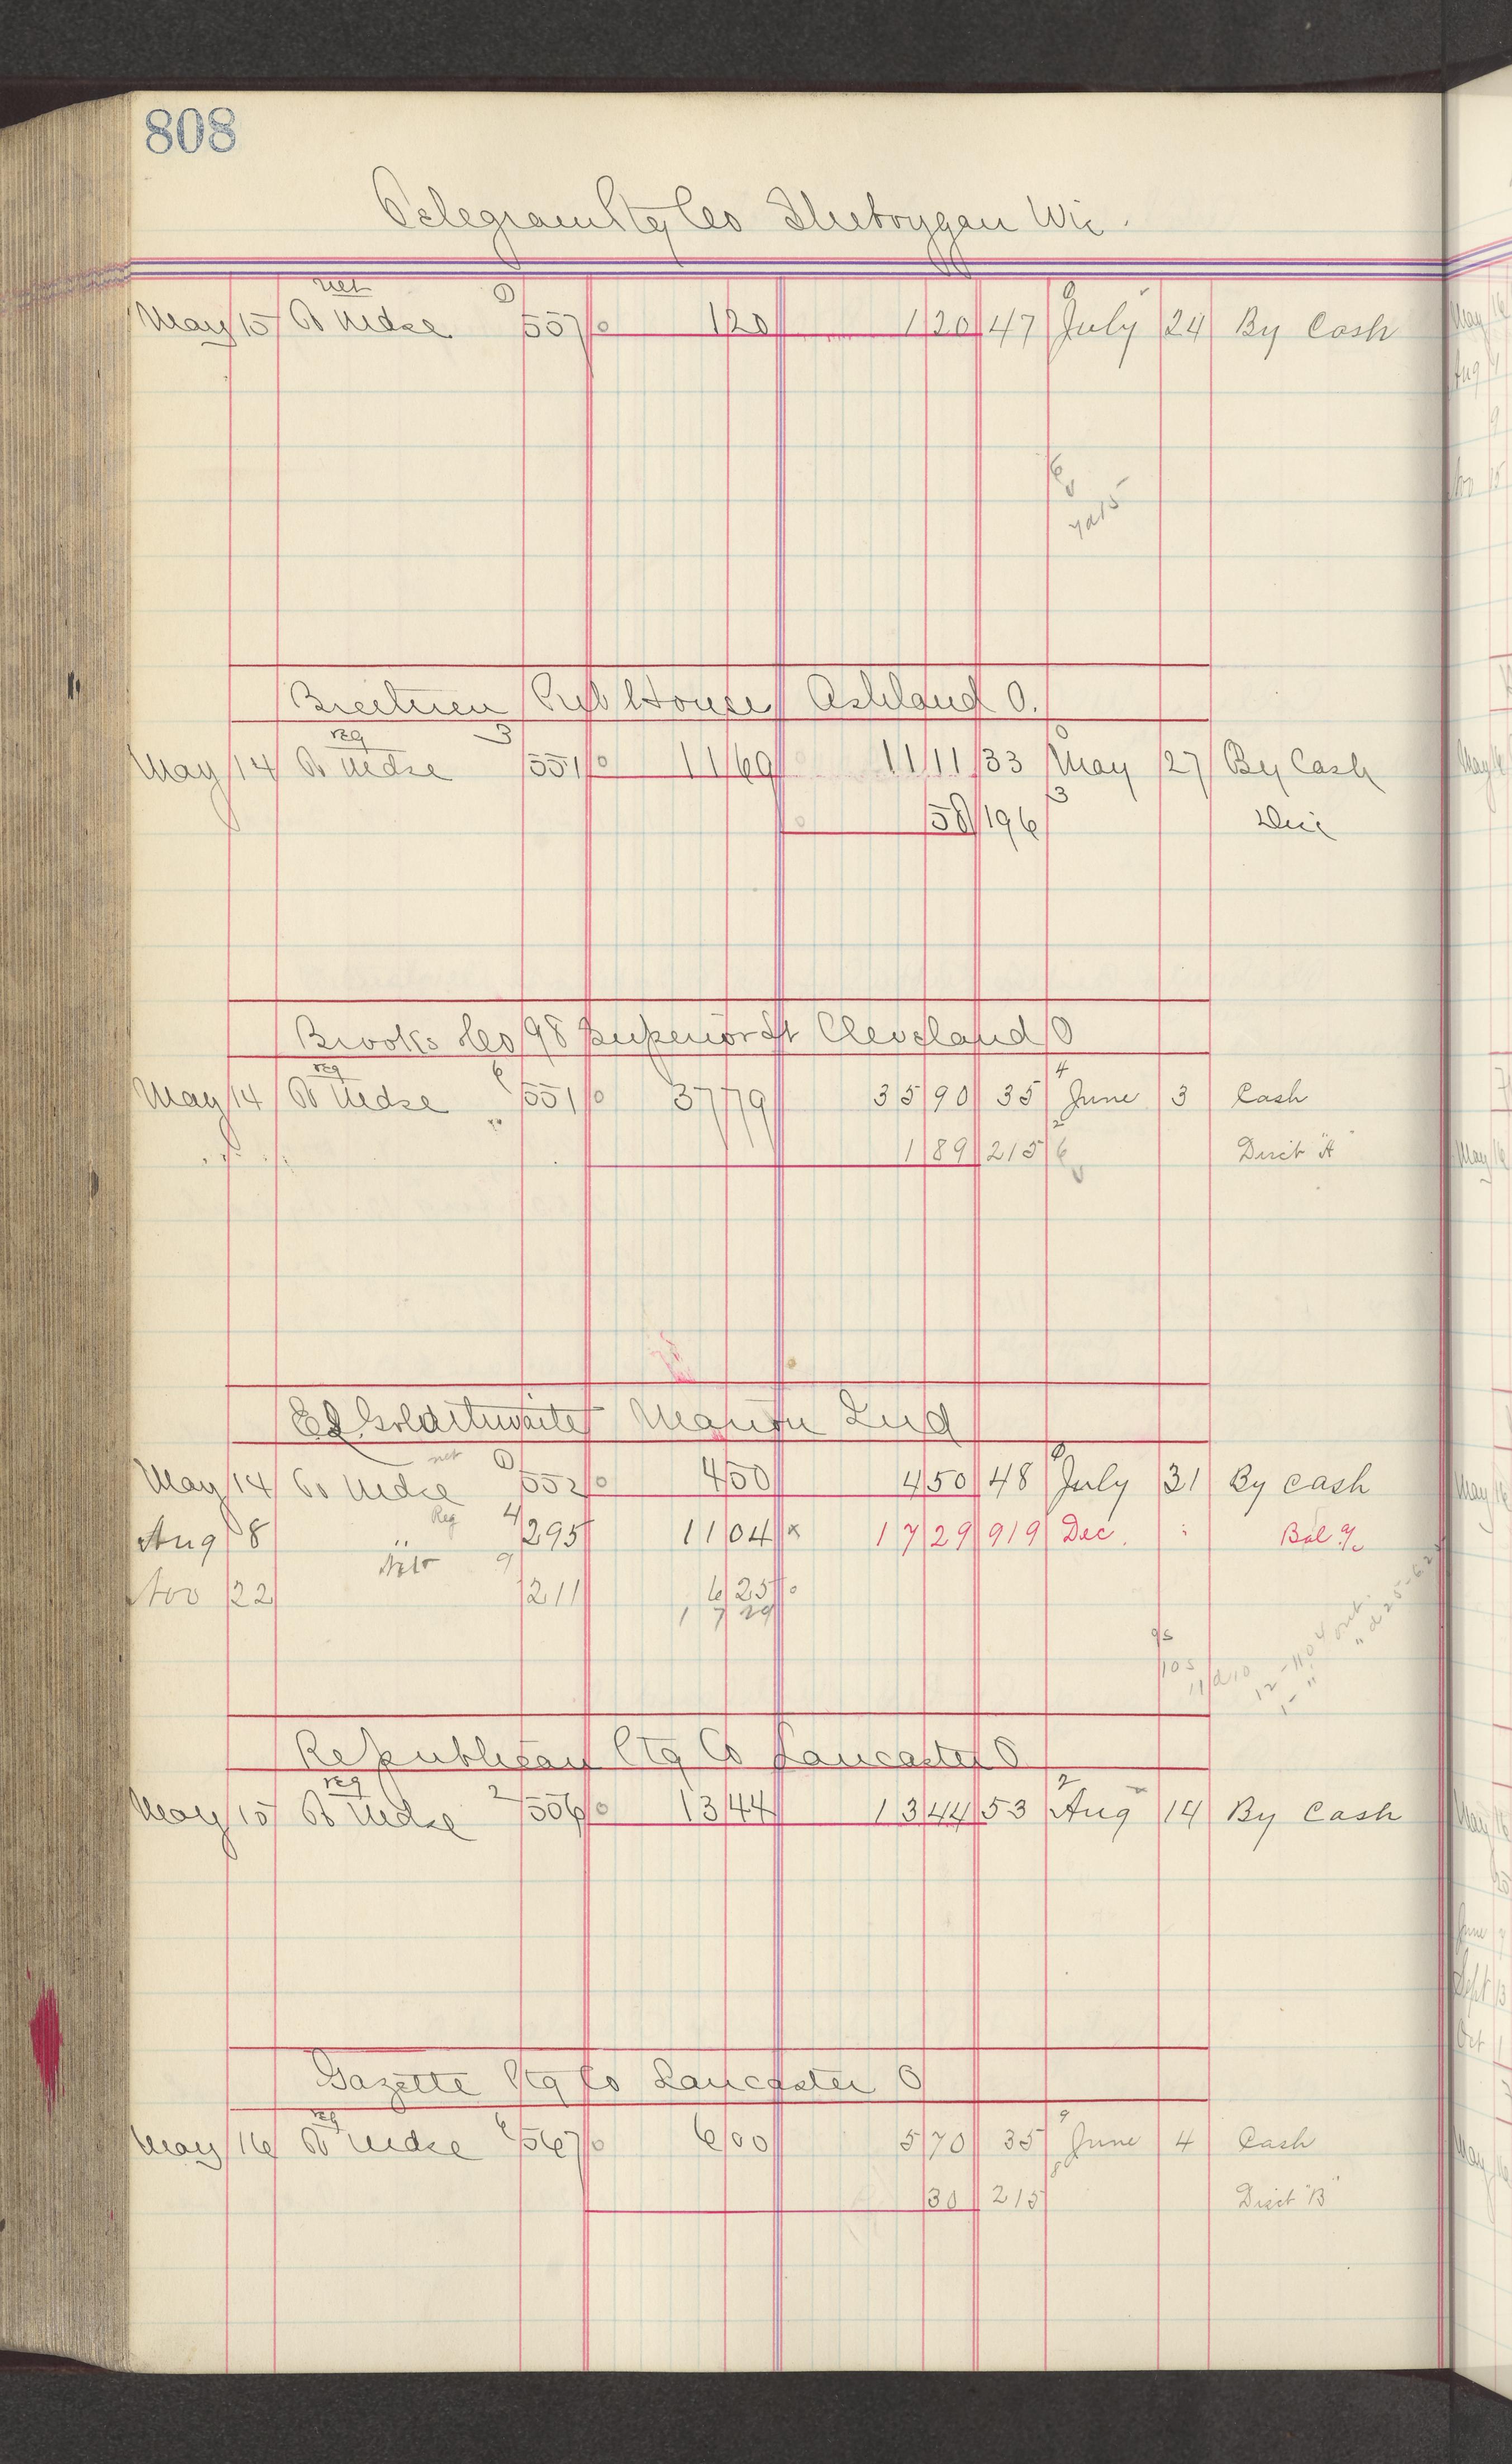 808
Telegram Ptg Co Sheboygan Wis.
net 1
May 15 To Mdse 557 120 120 47 July 24 By Cash
6
Brethren Pub House Ashland O.
reg 3
May 14 To Mdse 551 11 69 11 11 33 May 27 By Cash
58 196 3 Dis
Brooks Co 98 Superior St Cleveland O
reg 6 4
May 14 To Mdse 551 37 79 35 90 35 June 3 Cash
1 89 215 6 Disct "A"
Ed Goldthwaite Marion Ind
net 1
May 14 To Mdse 552 4 50 4 50 48 July 31 By Cash
Reg 4
Aug 8 " 295 11 04 x 17 29 919 Dec. Bal %
Net 9
Nov 22 211 6 25
17 29
9s
10s
11 d 10
12 - 1104 out.
1 - " " d 25-62
Republican Ptg Co Lancaster O
reg 2 2
May 15 To Mdse 556 13 44 13 44 53 Aug 14 By Cash
Gazette Ptg Co Lancaster O
reg 6 9
May 16 To Mdse 567 6 00 5 70 35 June 4 Cash
30 215 8 Disct "B"